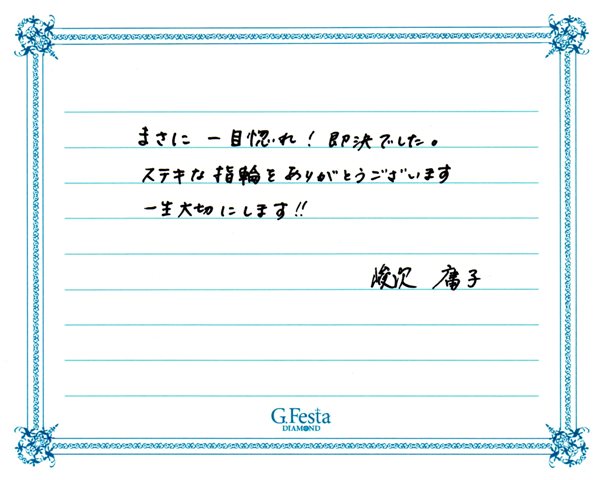 まさに一目惚れ！即決でした。
ステキな指輪をありがとうございます
一生大切にします!!
G.Festa
DIAMOND